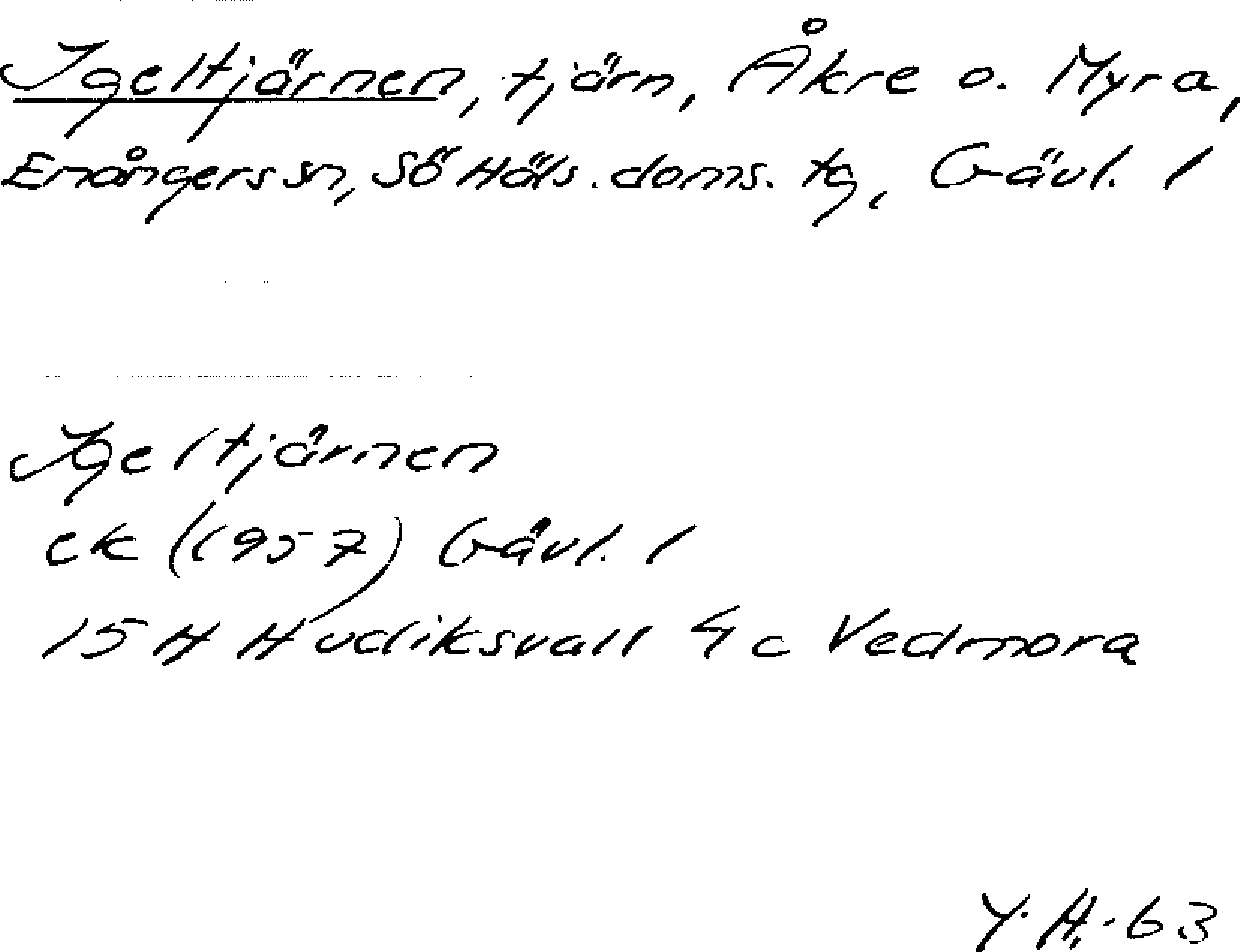 Igeltjärnen, tjärn, Åkre o. Myra,
Enångers sn, Sö Häls. doms. tg, Gävl. l
Igeltjärnen
ek (1957) Gävl. l
15 H Hudiksvall 4 c Vedmora
Y. H. 63